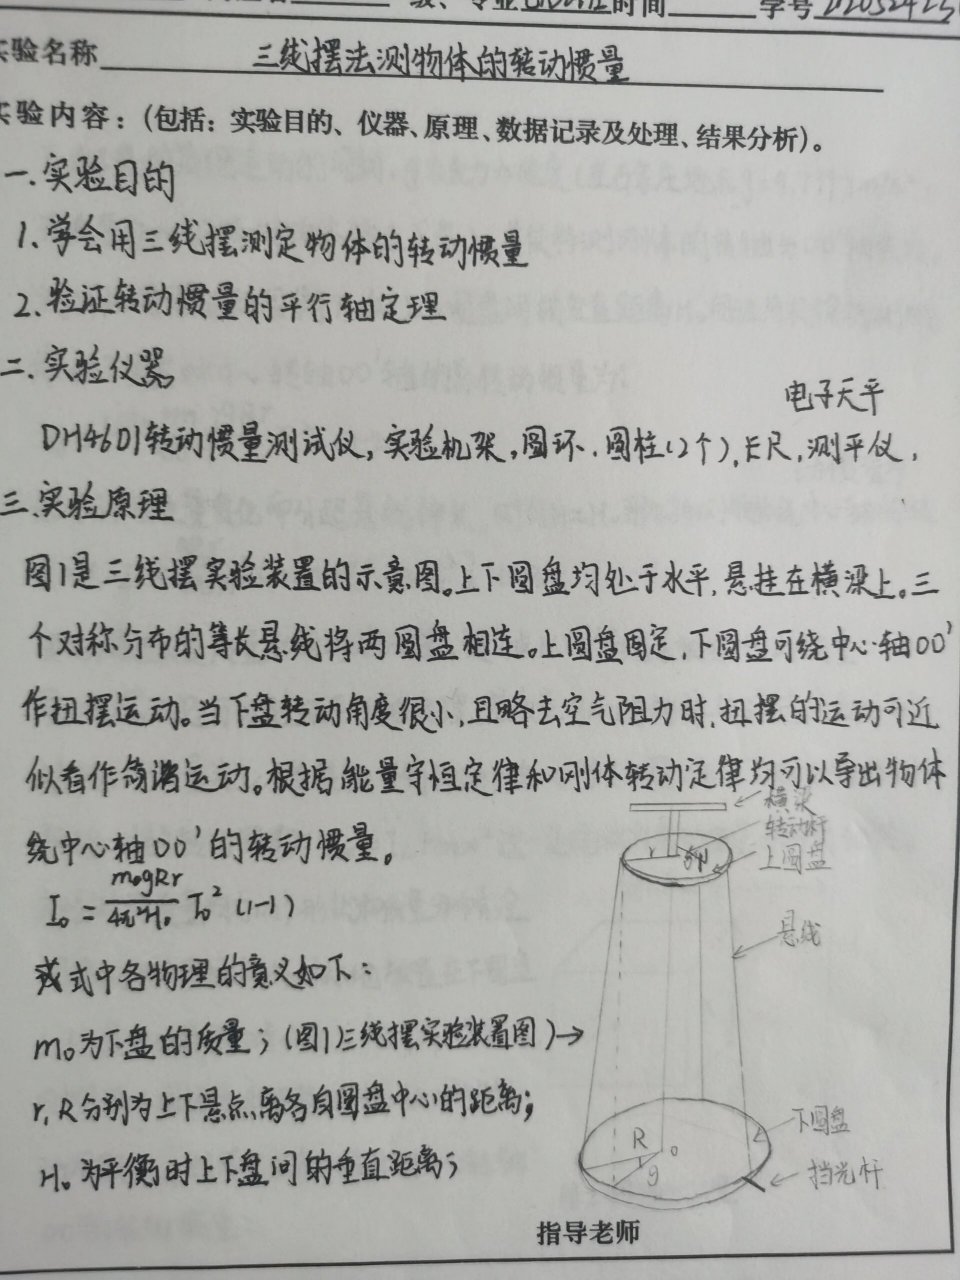 级、专业 时间 学号
实验名称 三线摆法测物体的转动惯量
实验内容：(包括：实验目的、仪器、原理、数据记录及处理、结果分析)。
一.实验目的
1、学会用三线摆测定物体的转动惯量
2、验证转动惯量的平行轴定理
二、实验仪器
电子天平
DH4601转动惯量测试仪，实验机架，圆环．圆柱(2个)，卡尺，测平仪，
三.实验原理
图1是三线摆实验装置的示意图。上下圆盘均处于水平，悬挂在横梁上。三
个对称分布的等长悬线将两圆盘相连。上圆盘固定，下圆盘可绕中心轴OO'
作扭摆运动。当下盘转动角度很小，且略去空气阻力时，扭摆的运动可近
似看作简谐运动。根据能量守恒定律和刚体转动定律均可以导出物体
绕中心轴OO'的转动惯量。
横梁
转动杆
上圆盘
r
I₀ = m₀gRr/4π²H₀ T₀² (1-1)
悬线
式中各物理的意义如下：
m₀为下盘的质量；(图1)三线摆实验装置图)→
r，R分别为上下悬点离各自圆盘中心的距离；
下圆盘
R
H₀为平衡时上下盘间的垂直距离；
挡光杆
指导老师